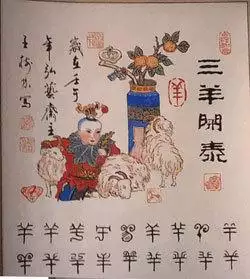 三羊開泰
羊
歲在壬午
年弘藝齋主
羊羊羊羊羊羊羊羊羊
羊羊羊羊羊羊羊羊羊